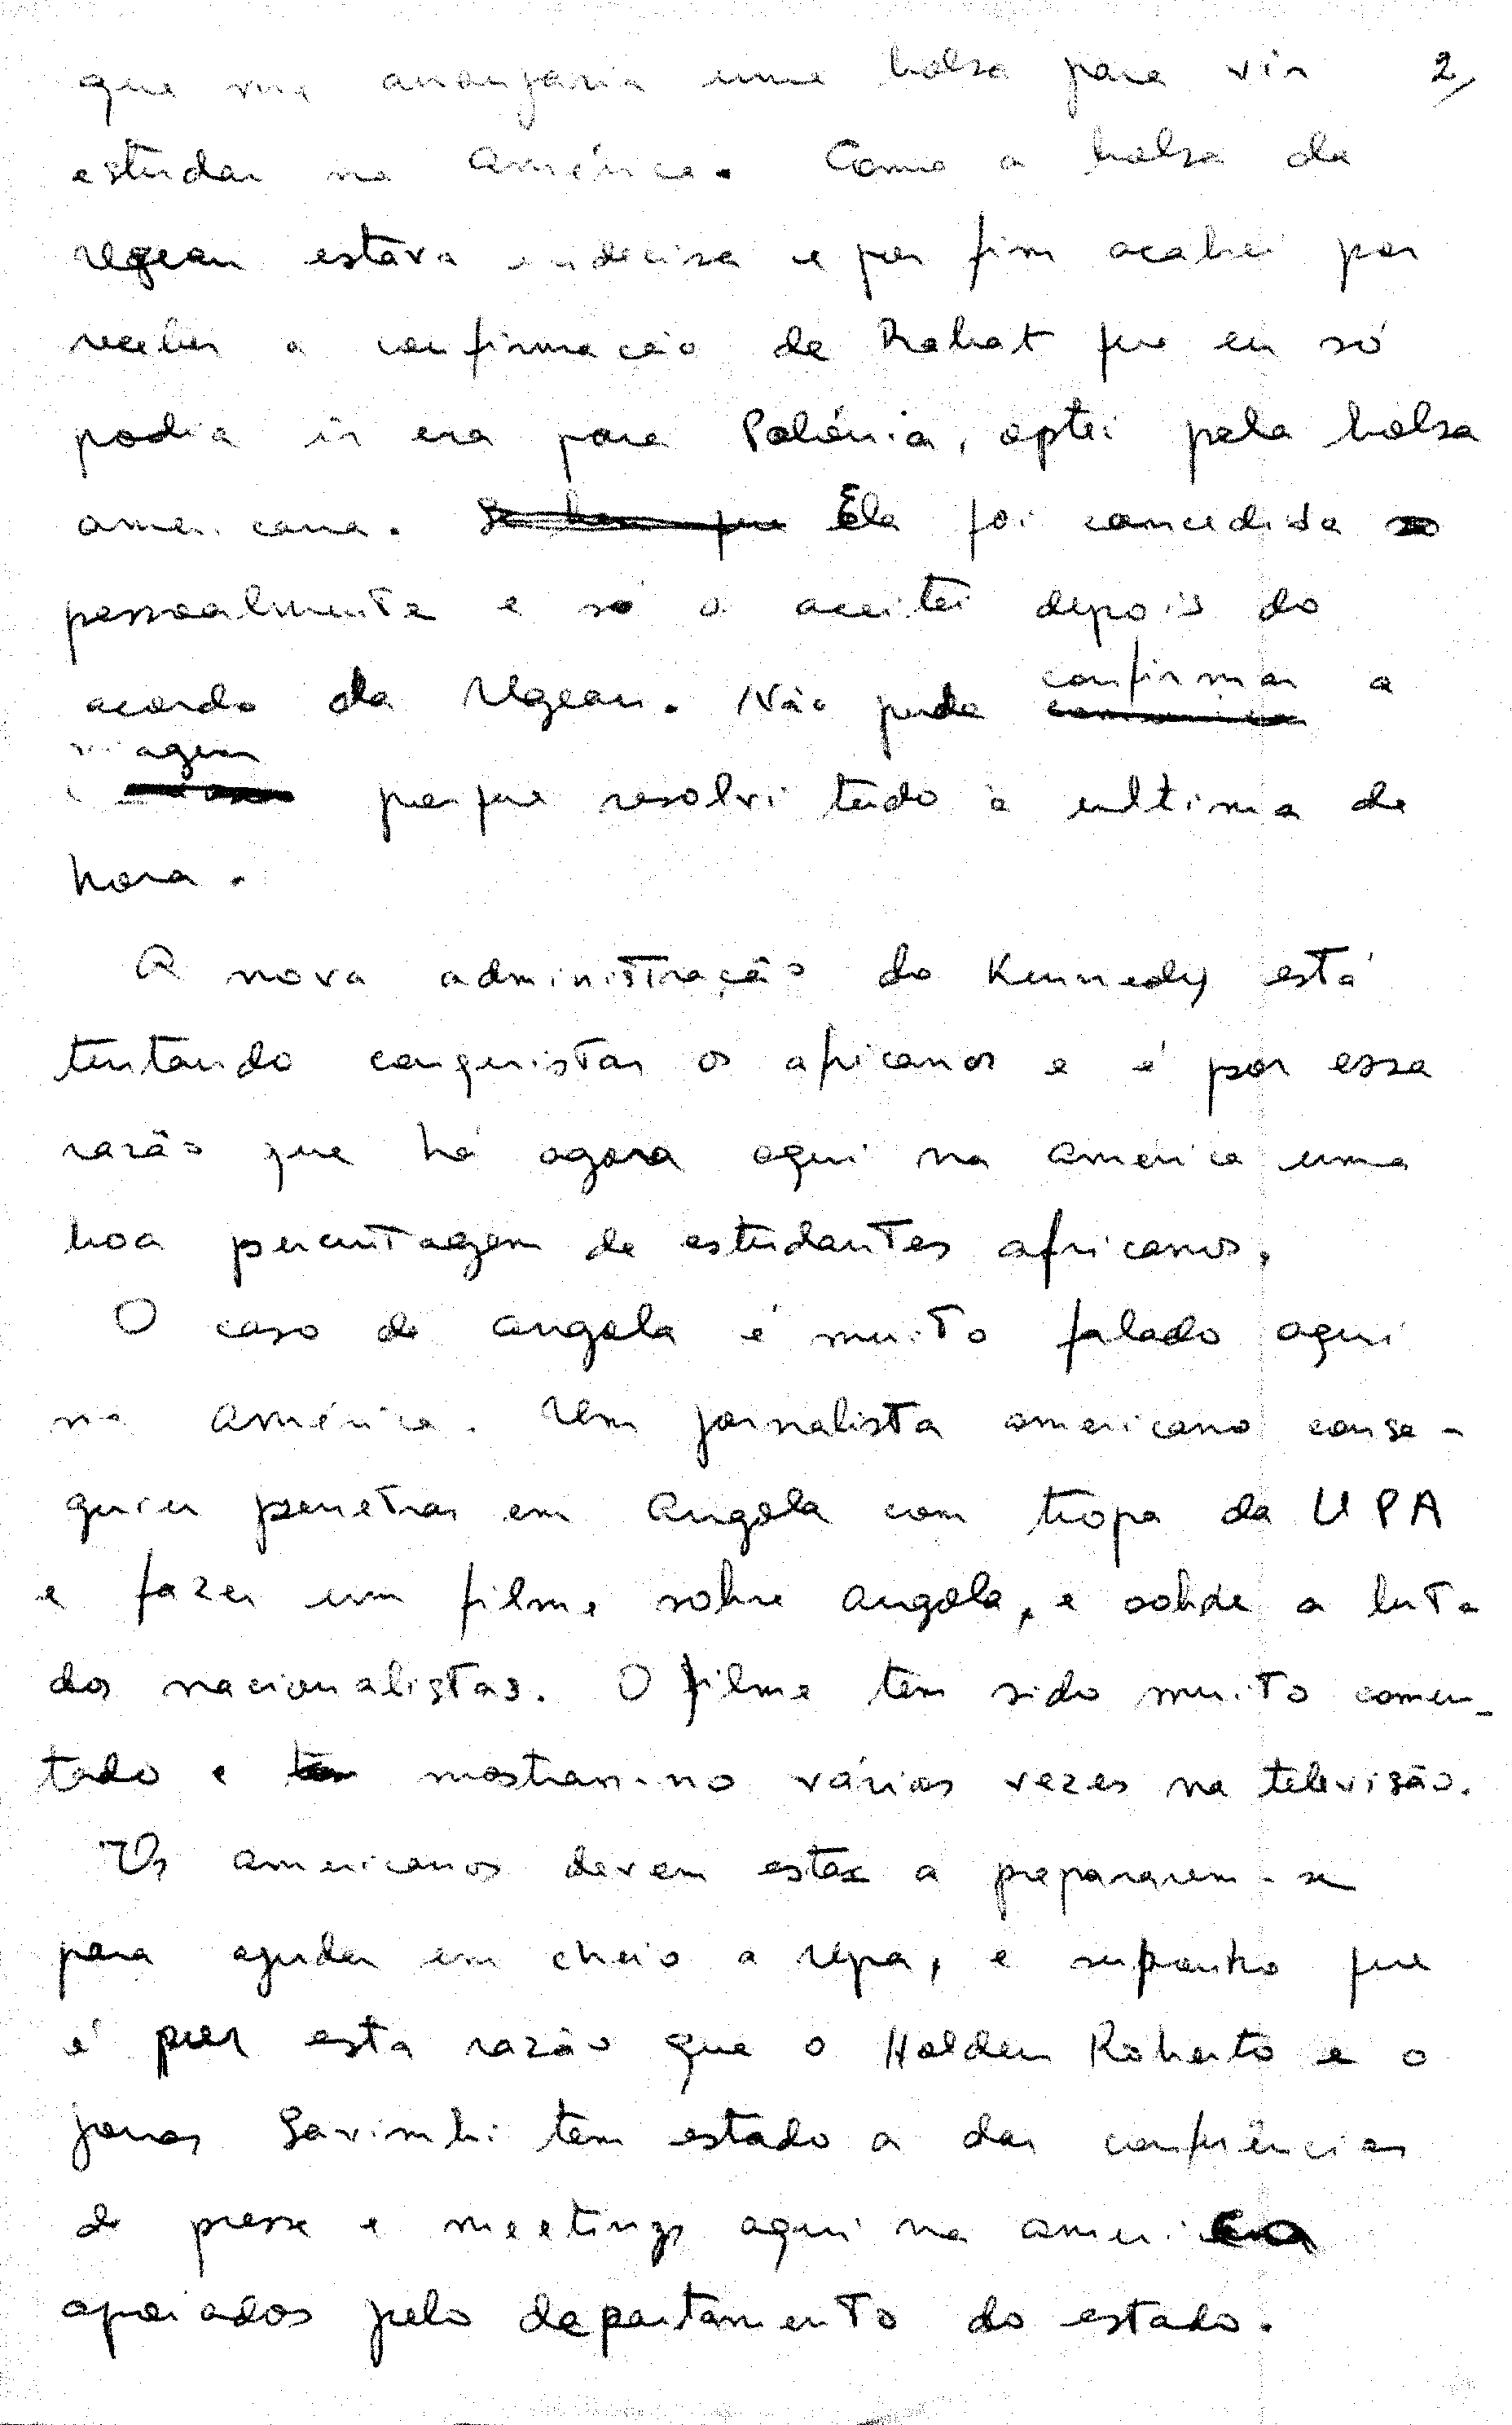 que me arranjaria uma bolsa para vir 2/
estudar na América. Como a bolsa da
Ugean estava indecisa e por fim acabei por
receber a confirmação de Rabat que eu só
podia ir era para Polónia, optei pela bolsa
americana. Se bem que Ela foi concedida
pessoalmente e só a aceitei depois do
acordo da Ugean. Não pude confirmar a
viagem
porque resolvi tudo à ultima de
hora.
A nova administração do Kennedy está
tentando conquistar os africanos e é por essa
razão que há agora aqui na América uma
boa percentagem de estudantes africanos.
O caso de Angola é muito falado aqui
na América. Um jornalista americano conse-
guiu penetrar em Angola com tropa da UPA
e fazer um filme sobre Angola, e sobre a luta
dos nacionalistas. O filme tem sido muito comen-
tado e tem mostram-no várias vezes na televisão.
Os americanos devem estar a prepararem-se
para ajudar em cheio a Upa, e suponho que
é por esta razão que o Holden Roberto e o
Jonas Savimbi tem estado a dar conferências
de presse e meetings aqui na America
apoiados pelo departamento do estado.